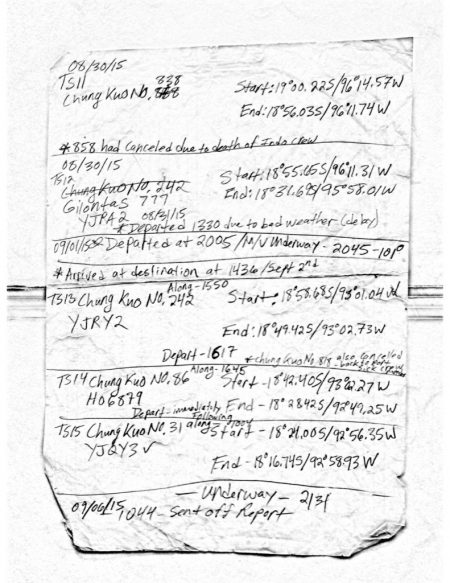 08/30/15
TS11 838
Chung Kuo No. 858 Start: 19°00.22S/96°14.57W
End: 18°56.03S/96°11.74W
*858 had canceled due to death of Indo crew
08/30/15
TS12 Start: 18°55.65S/96°11.31W
Chung Kuo NO. 242 End: 18°31.69S/95°58.01W
Gilontas 777
YJPA2 08/31/15
*Departed 1330 due to bad weather (delay)
09/01/15 Departed at 2005/M/V Underway - 2045 -
*Arrived at destination at 1436/Sept 2nd
Along - 1550
TS13 Chung Kuo NO. 242 Start: 18°58.68S/93°01.04W
YJRY2
End: 18°49.42S/93°02.73W
Depart - 1617 *Chung Kuo No. 818 also cancelled
back to port
sick crew
Along - 1645
TS14 Chung Kuo NO. 86 Start - 18°42.40S/93°02.27W
HO6879
Depart - immediately End - 18°28.42S/92°49.25W
Following
TS15 Chung Kuo NO. 31 along Start - 18°21.00S/92°56.35W
YJQY3 ✓
End - 18°16.74S/92°58.93W
— Underway — 2131
09/06/15 1044 - Sent off Report